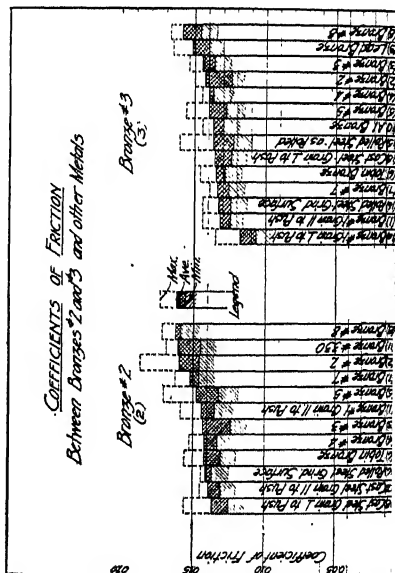 COEFFICIENTS OF FRICTION
Between Bronzes #2 and #3 and other Metals
Bronze #2
(2)
Bronze #3
(3)
Max.
Ave.
Min.
Legend
Coefficient of Friction
0.20
0.15
0.10
0.05
Cast Steel Grain ⊥ to Push
Cast Steel Grain || to Push
Rolled Steel Grind Surface
Tobin Bronze
Bronze #4
Bronze #3
Bronze #1 Grain || to Push
Bronze #5
Bronze #7
Bronze #2
Bronze #350
Bronze #8
Bronze #1 Grain ⊥ to Push
Bronze #1 Grain || to Push
Rolled Steel Grind Surface
Bronze #7
Tobin Bronze
Cast Steel Grain ⊥ to Push
Rolled Steel as Rolled
Al Bronze
Bronze #5
Bronze #4
Bronze #2
Bronze #3
Bronze
Bronze #8